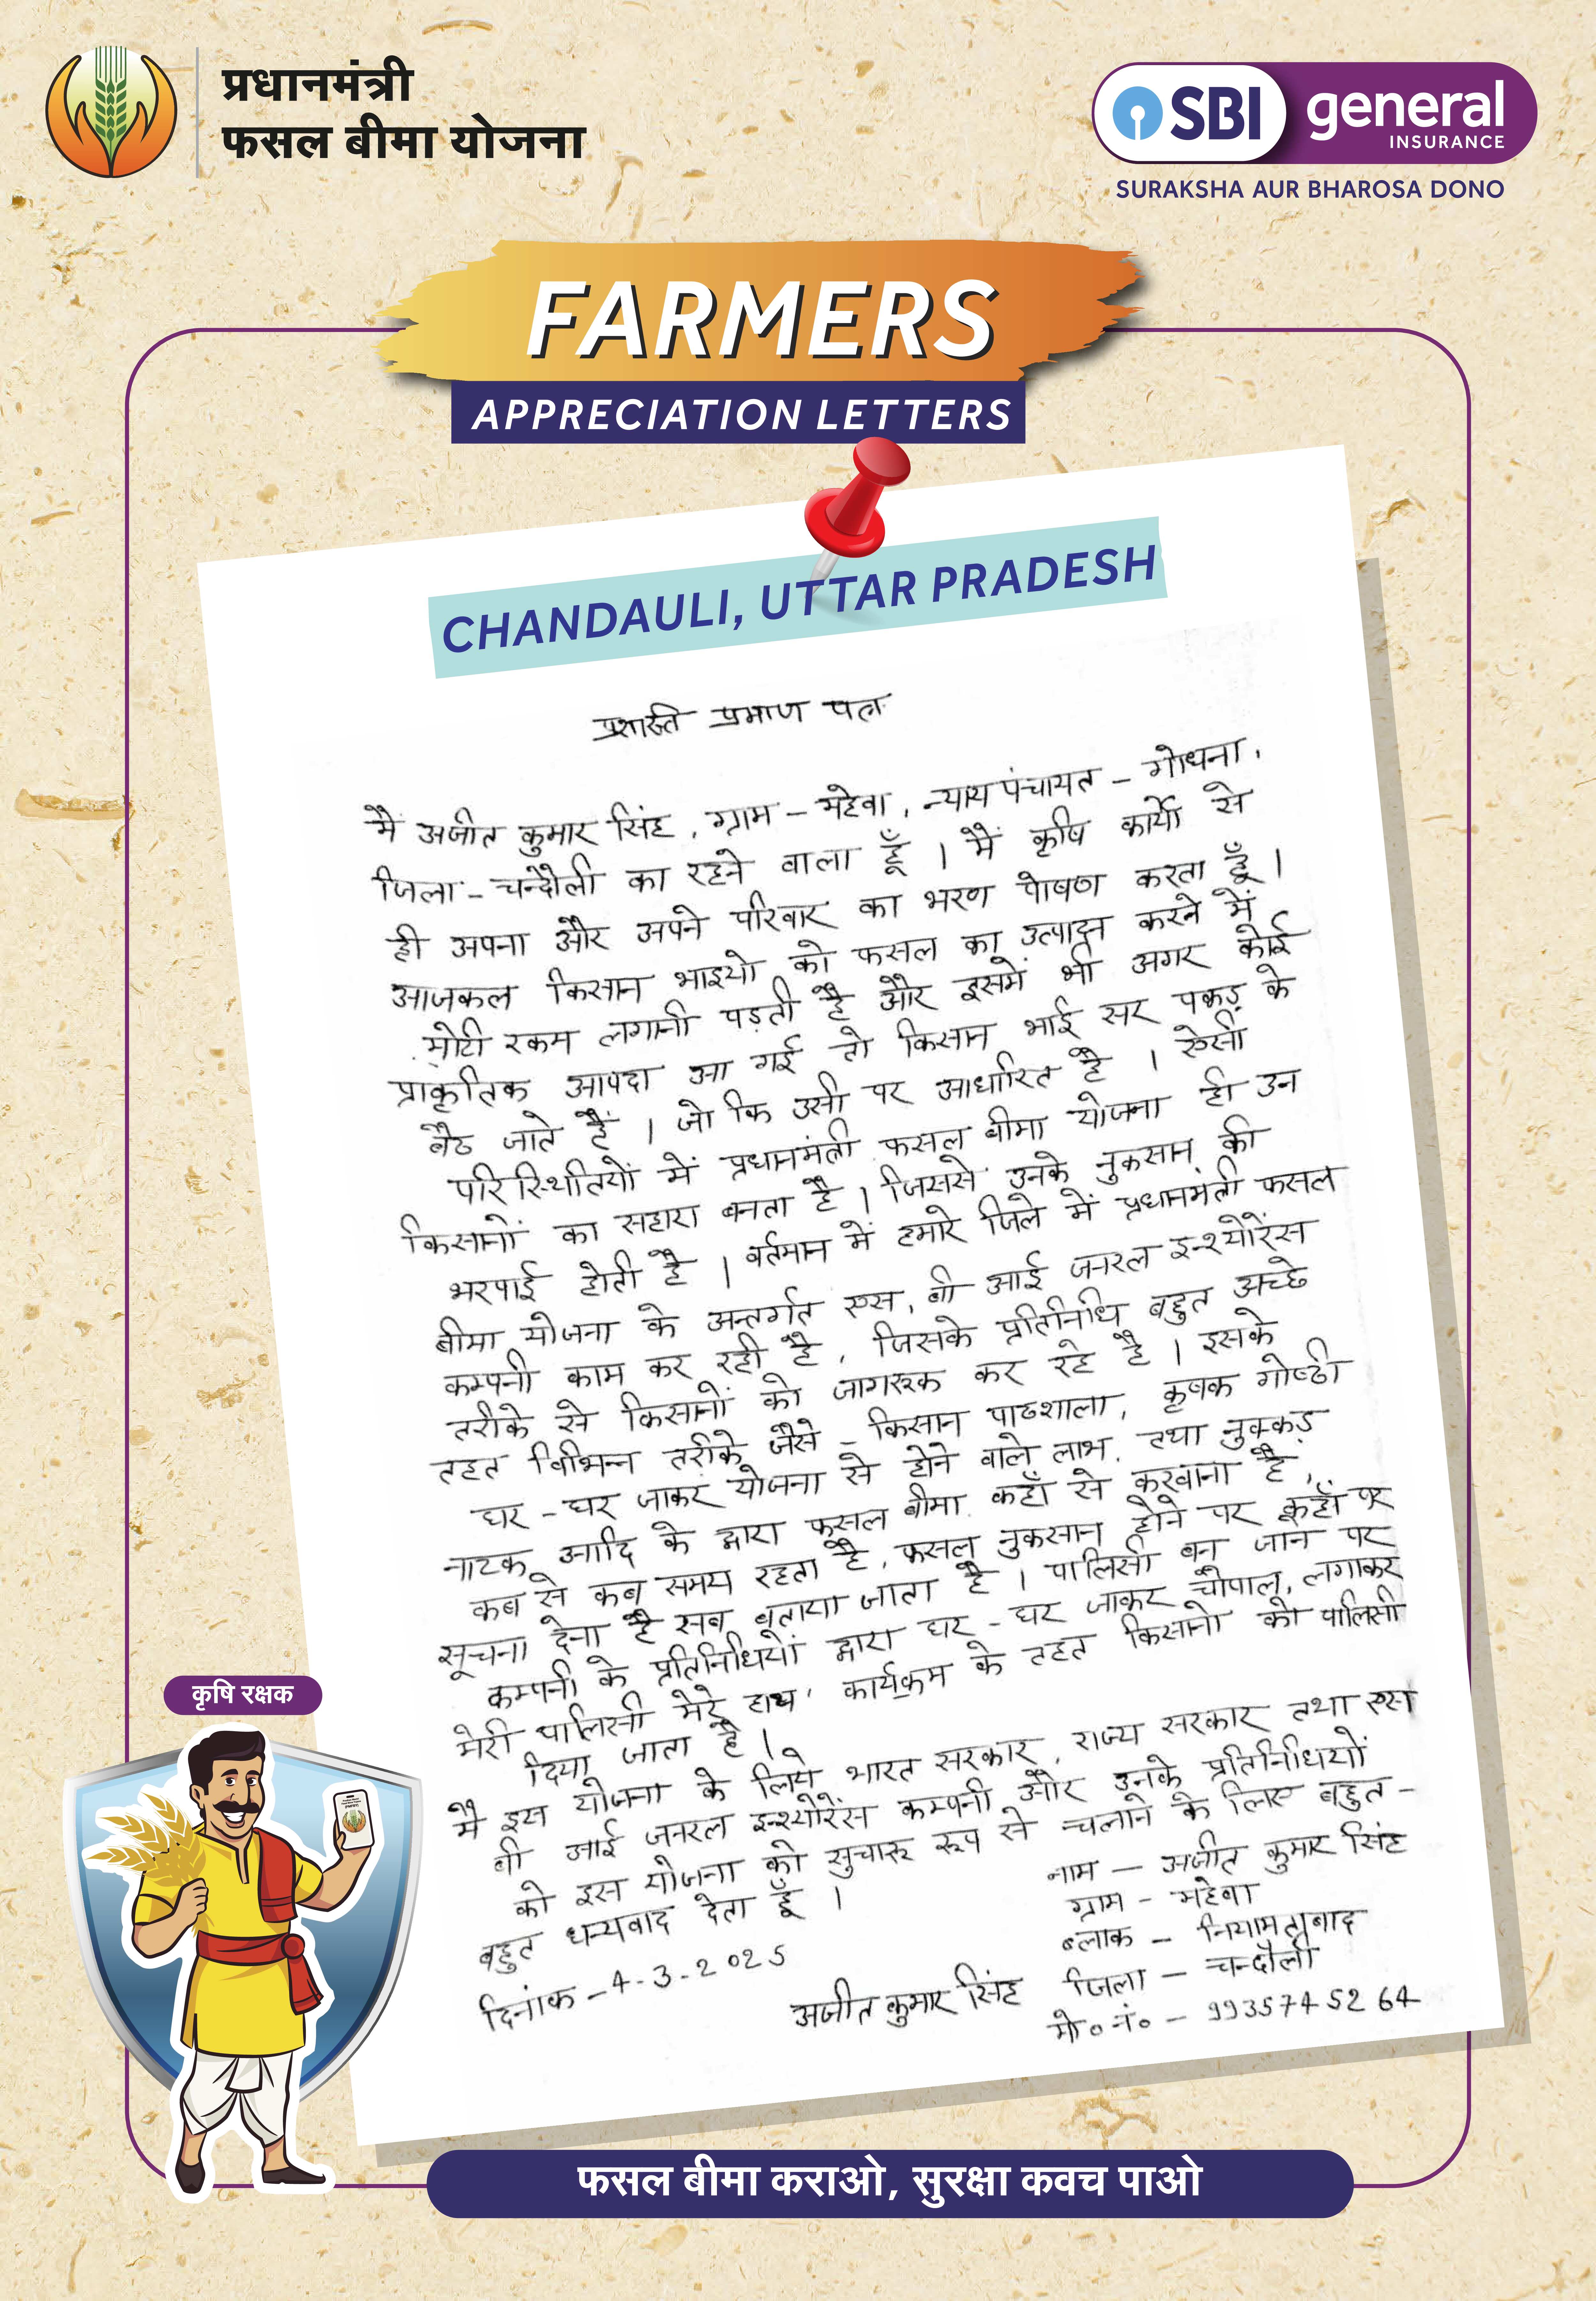 प्रधानमंत्री
फसल बीमा योजना
SBI general
INSURANCE
SURAKSHA AUR BHAROSA DONO
FARMERS
APPRECIATION LETTERS
CHANDAULI, UTTAR PRADESH
प्रशस्ति प्रमाण पत्र
मैं अजीत कुमार सिंह, ग्राम - महेवा, न्याय पंचायत - गोधना,
जिला - चन्दौली का रहने वाला हूँ । मैं कृषि कार्यो से
ही अपना और अपने परिवार का भरण पोषण करता हूँ ।
आजकल किसान भाइयो को फसल का उत्पादन करने में
मोटी रकम लगानी पड़ती है और इसमें भी अगर कोई
प्राकृतिक आपदा आ गई तो किसान भाई सर पकड़ के
बैठ जाते हैं । जो कि उसी पर आधारित है । ऐसी
परिस्थितियों में प्रधानमंत्री फसल बीमा योजना ही उन
किसानों का सहारा बनता है । जिससे उनके नुकसान की
भरपाई होती है । वर्तमान में हमारे जिले में प्रधानमंत्री फसल
बीमा योजना के अन्तर्गत एस, बी आई जनरल इन्श्योरेंस
कम्पनी काम कर रही है, जिसके प्रतिनिधि बहुत अच्छे
तरीके से किसानों को जागरूक कर रहे है । इसके
तहत विभिन्न तरीके जैसे - किसान पाठशाला, कृषक गोष्ठी
घर - घर जाकर योजना से होने वाले लाभ, तथा नुक्कड़
नाटक आदि के द्वारा फसल बीमा कहाँ से करवाना है,
कब से कब समय रहता है, फसल नुकसान होने पर कहाँ पर
सूचना देना है सब बताया जाता है । पालिसी बन जाने पर
कम्पनी के प्रतिनिधियों द्वारा घर - घर जाकर चौपाल, लगाकर
मेरी पालिसी मेरे हाथ' कार्यक्रम के तहत किसानो को पालिसी
दिया जाता है ।
मै इस योजना के लिये भारत सरकार, राज्य सरकार तथा एस
बी आई जनरल इन्श्योरेंस कम्पनी और उनके प्रतिनिधियों
को इस योजना को सुचारू रूप से चलाने के लिए बहुत -
बहुत धन्यवाद देता हूँ ।
दिनांक - 4-3-2025
अजीत कुमार सिंह
नाम - अजीत कुमार सिंह
ग्राम - महेवा
ब्लाक - नियामताबाद
जिला - चन्दौली
मो० नं० - 9935745264
कृषि रक्षक
फसल बीमा कराओ, सुरक्षा कवच पाओ